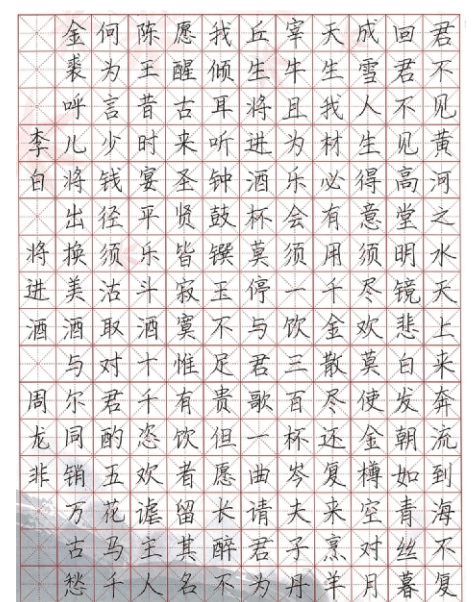 君不见黄河之水天上来奔流到海不复
回君不见高堂明镜悲白发朝如青丝暮
成雪人生得意须尽欢莫使金樽空对月
天生我材必有用千金散尽还复来烹羊
宰牛且为乐会须一饮三百杯岑夫子丹
丘生将进酒杯莫停与君歌一曲请君为
我倾耳听钟鼓馔玉不足贵但愿长醉不
愿醒古来圣贤皆寂寞惟有饮者留其名
陈王昔时宴平乐斗酒十千恣欢谑主人
何为言少钱径须沽取对君酌五花马千
金裘呼儿将出换美酒与尔同销万古愁
李白 将进酒 周龙非